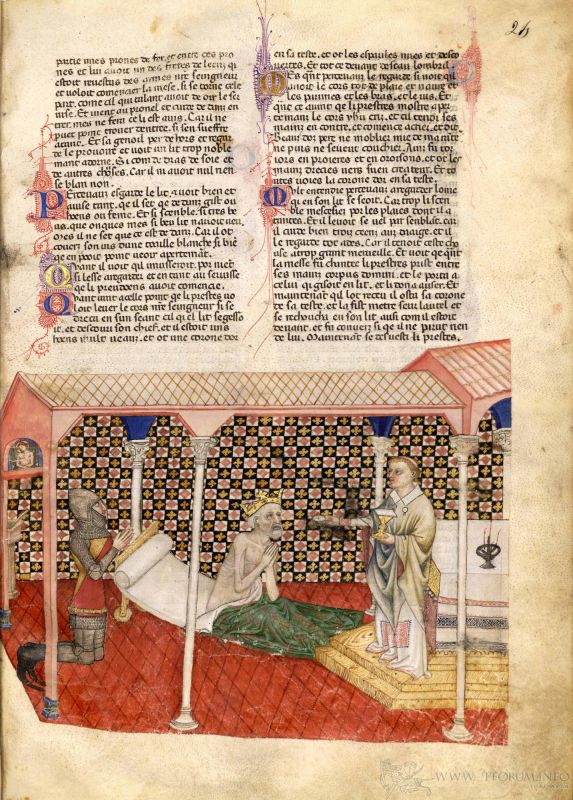 partie unes prones de fer, et entre ces pro
nes et lui avoit un des freres de leenz qi
estoit revestus des armes nre seingneor
et voloit comencier la mese. Si se torne cele
part, come cil qui talant avoit de oir le ser
vise. Et vient au pronel et cuide de dinz en
trer, mes ne ferr ce li est avis. Car il ne
puet point trover dentree. Si sen sueffre
atant. Et sa genoil per dehors et regar
de le provoire et voit un lit trop noble
mant adorne. Si com de dras de soie et
de autres choses. Car il ni avoit nul rien
se blan non.
Percevaus esgarde le lit, avoit bien et
avise tant, que il set qe dedanz gist ou
hons ou feme. Et si
us, que onques mes si
ores il ne set que cest de danz. Car il ot
covert son vis dune toaille blanche si bie
qe en pooit point veoir apertemant.
Quant il voit qil
si lesse a regarder et en tant au servise
qe li preudons avoit comencie.
Quant vint a celle point qe li prestres vo
loit lever le cors nre seingneur si se
dreca en sun seant cil qi el lit se gesso
it, et descouvri son chief, et il estoit uns
hons mult veauz, et ot une corone dor
26
en sa teste, et ot les espaules nues et desco
vertes. Et tot ce devant desci au lombril.
Et qnt percevaus le regarde si voit qil
avoit le cors tot de plaie et navre et
les paumes et les bras, et le vis. Et
que ce avint qe li prestres mostre aper
temant le cors yhu crist, et cil tenoi ses
mainz en contre, et comence a crier, et dit
Beau doz pere ne noblier mie de ma rente
ne puis ne se vout couchier. Ainz fu to
tiors en proieres et en oroisons, et ot les
mainz drecies vers sien creatour. Et to
tes voies la corone dor en la teste.
Mlt entendit percevaus a regarder lome
qi en son lit se seoit. Car trop li sen
ble mesehaisie por les plaies dont il a
tantes. Et il lavoit se viel per senblant, qil
cuide bien trois cens anz daage, et il
le regarde tot ades. Car il tenoit ceste cho
use a trop grant merveille. Et voit qe qnt
la messe fu chantee li prestres prist entre
ses mainz corpus domini, et le porta a
celui qi gisoit en lit, et li dona auser. Et
maintenant qil lot receu il osta sa corone
de sa teste, et la fist metre seur lautel et
se rechoucha en son lit ausi com il estoit
devant, et fu covert si qe il ne parut rien
de lui. Maintenant se desvesti li prestes.
WWW.TFORUM.INFO